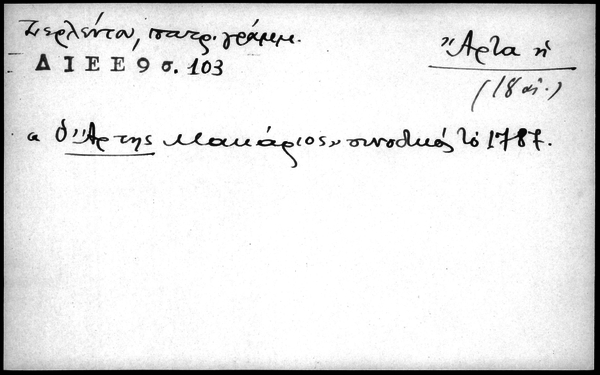 Ζερλέντου, πατρ. γράμμ.
ΔΙΕΕ 9 σ. 103
Ἄρτα ἡ
(18 αἰ.)
« Ὁ Ἄρτης Μακάριος» συνοδικός τὸ 1787.